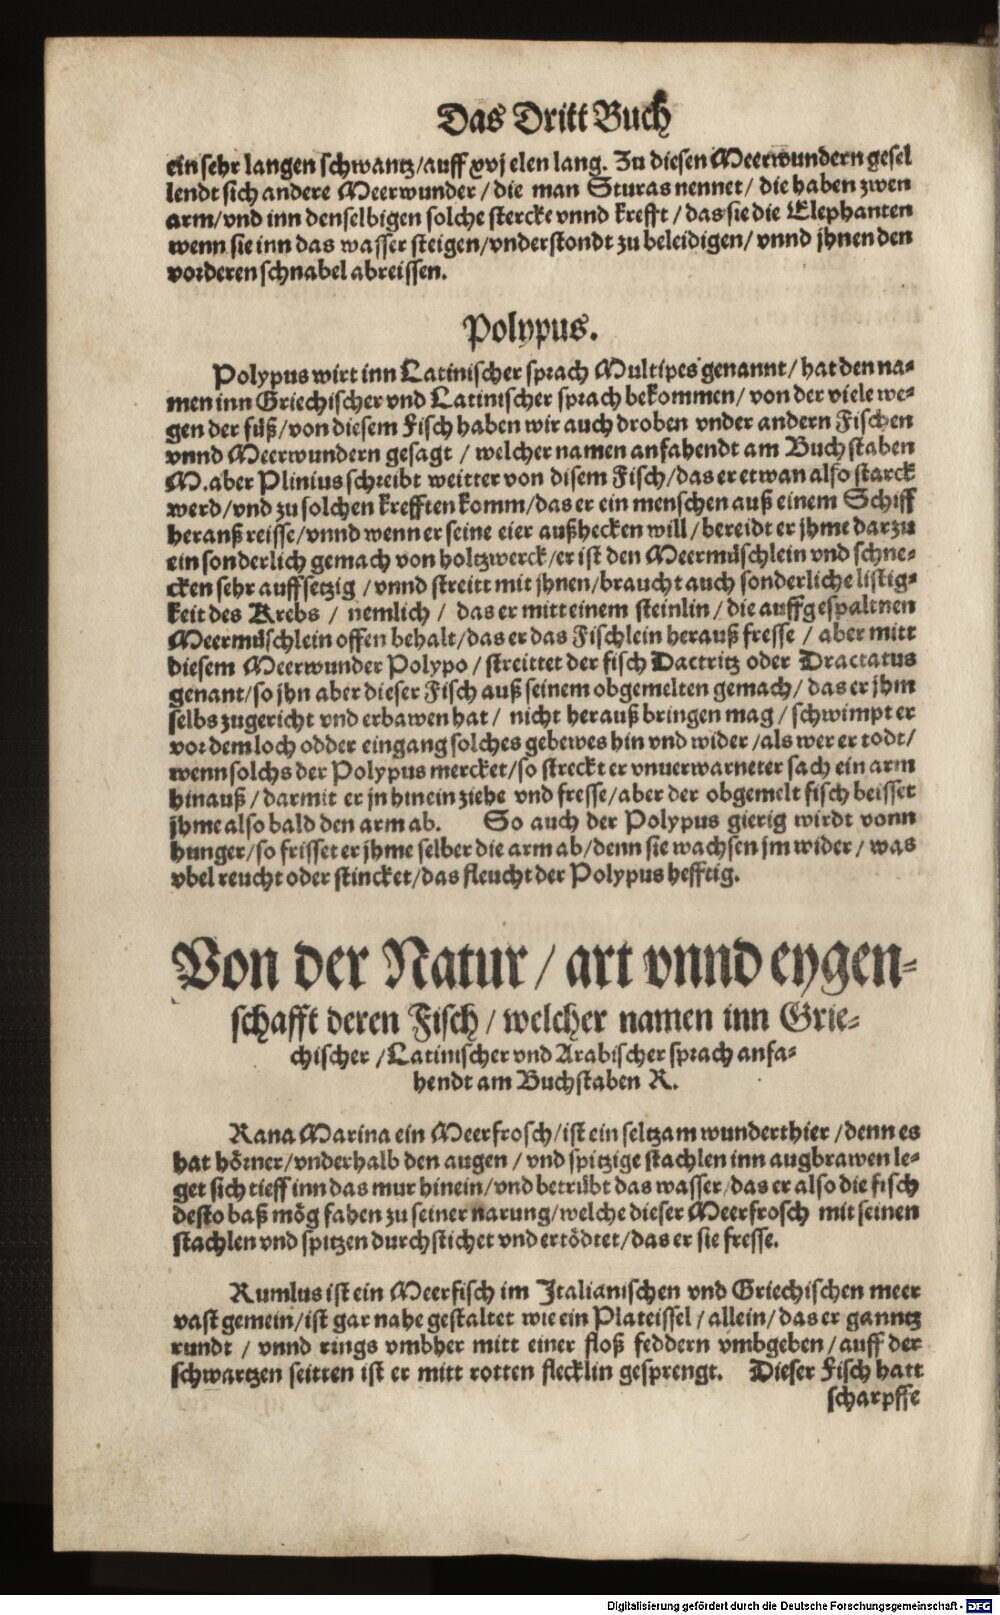 Das Dritt Buch
ein sehr langen schwantz/auff xvj elen lang. Zu diesen Meerwundern gesel
lendt sich andere Meerwunder/die man Sturas nennet/die haben zwen
arm/vnd inn denselbigen solche stercke vnnd krefft/das sie die Elephanten
wenn sie inn das wasser steigen/vnderstondt zu beleidigen/vnnd jhnen den
vorderen schnabel abreissen.
Polypus.
Polypus wirt inn Latinischer sprach Multipes genannt/hat den na-
men inn Griechischer vnd Latinischer sprach bekommen/von der viele we-
gen der füß/von diesem Fisch haben wir auch droben vnder andern Fischen
vnnd Meerwundern gesagt/welcher namen anfahendt am Buchstaben
M. aber Plinius schreibt weitter von disem Fisch/das er etwan also starck
werd/vnd zu solchen krefften komm/das er ein menschen auß einem Schiff
heranß reisse/vnnd wenn er seine eier außhecken will/bereidt er jhme darzu
ein sonderlich gemach von holtzwerck/er ist den Meermüschlein vnd schne-
cken sehr auffsetzig/vnnd streitt mit jhnen/braucht auch sonderliche listig-
keit des Krebs/nemlich/das er mitt einem steinlin/die auffgespaltnen
Meermüschlein offen behalt/das er das Fischlein herauß fresse/aber mitt
diesem Meerwunder Polypo/streittet der fisch Dactritz oder Dractatus
genant/so jhn aber dieser Fisch auß seinem obgemelten gemach/das er jhm
selbs zugericht vnd erbawen hat/nicht herauß bringen mag/schwimpt er
vor dem loch odder eingang solches gebewes hin vnd wider/als wer er todt/
wenn solchs der Polypus mercket/so streckt er vnuerwarneter sach ein arm
hinauß/darmit er jn hinein ziehe vnd fresse/aber der obgemelt fisch beisset
jhme also bald den arm ab. So auch der Polypus gierig wirdt vonn
hunger/so frisset er jhme selber die arm ab/denn sie wachsen jm wider/was
vbel reucht oder stincket/das fleucht der Polypus hefftig.
Von der Natur/art vnnd eygen-
schafft deren Fisch/welcher namen inn Grie-
chischer/Latinischer vnd Arabischer sprach anfa-
hendt am Buchstaben R.
Rana Marina ein Meerfrosch/ist ein seltzam wunderthier/denn es
hat hörner/vnderhalb den augen/vnd spitzige stachlen inn augbrawen le-
get sich tieff inn das mur hinein/vnd betrübt das wasser/das er also die fisch
desto baß mög fahen zu seiner narung/welche dieser Meerfrosch mit seinen
stachlen vnd spitzen durchstichet vnd ertödtet/das er sie fresse.
Rumlus ist ein Meerfisch im Italianischen vnd Griechischen meer
vast gemein/ist gar nahe gestaltet wie ein Plateissel/allein/das er ganntz
rundt/vnnd rings vmbher mitt einer floß feddern vmbgeben/auff der
schwartzen seitten ist er mitt rotten flecklin gesprengt. Dieser Fisch hatt
scharpffe
Digitalisierung gefördert durch die Deutsche Forschungsgemeinschaft - DFG